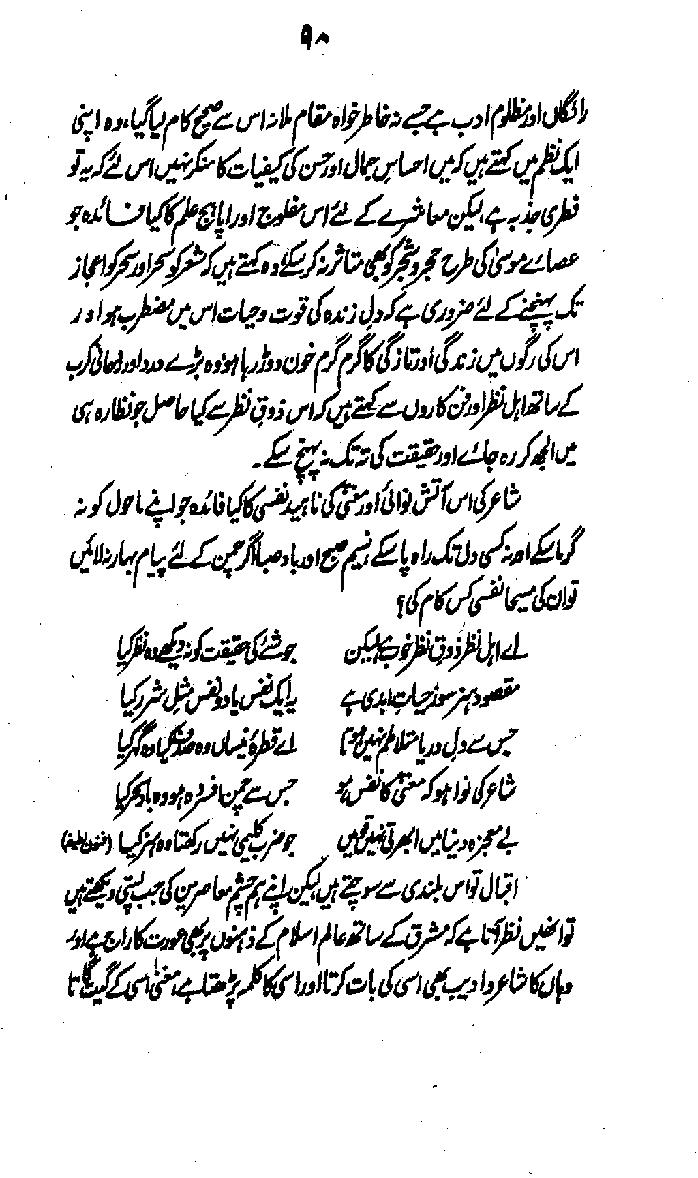 ۹۸
رائگاں اور مظلوم ادب ہے جسے نہ خاطر خواہ مقام ملا نہ اس سے صحیح کام لیا گیا، وہ اپنی
ایک نظم میں کہتے ہیں کہ میں احساسِ جمال اور حسن کی کیفیات کا منکر نہیں اس لئے کہ یہ تو
فطری جذبہ ہے، لیکن معاشرے کے لئے اس مفلوج اور اپاہج علم کا کیا فائدہ جو
عصائے موسیٰ کی طرح حجر و شجر کو بھی متاثر نہ کر سکے؛ وہ کہتے ہیں کہ شعر کو سحر اور سحر کو اعجاز
تک پہنچنے کے لئے ضروری ہے کہ دل زندہ کی قوت و حیات اس میں مضطرب ہو اور
اس کی رگوں میں زندگی اور تازگی کا گرم گرم خون دوڑ رہا ہو وہ بڑے درد اور روحانی کرب
کے ساتھ اہل نظر اور فن کاروں سے کہتے ہیں کہ اس ذوقِ نظر سے کیا حاصل جو نظارہ ہی
میں الجھ کر رہ جائے اور حقیقت کی تہ تک نہ پہنچ سکے۔
شاعر کی اس آتش نوائی اور مغنی کی ناہید نفسی کا کیا فائدہ جو اپنے ماحول کو نہ
گرما سکے اور نہ کسی دل تک راہ پا سکے نسیم صبح اور باد صبا اگر چمن کے لئے پیام بہار نہ لائیں
تو ان کی مسیحا نفسی کس کام کی؟
اے اہل نظر ذوقِ نظر خوب ہے لیکن جو شئے کی حقیقت کو نہ دیکھے وہ نظر کیا
مقصود ہنر سوزِ حیات ابدی ہے یہ ایک نفس یا دو نفس مثل شرر کیا
جس سے دل دریا متلاطم نہیں ہوتا اے قطرۂ نیساں وہ صدف کیا وہ گہر کیا
شاعر کی نوا ہو کہ مغنی کا نفس ہو جس سے چمن افسردہ ہو وہ باد سحر کیا
بے معجزہ دنیا میں ابھرتی نہیں قومیں جو ضرب کلیمی نہیں رکھتا وہ ہنر کیا (فنون لطیفہ)
اقبال تو اس بلندی سے سوچتے ہیں لیکن اپنے ہم چشم معاصرین کی جب پستی دیکھتے ہیں
تو انھیں نظر آتا ہے کہ مشرق کے ساتھ عالم اسلام کے ذہنوں پر بھی عورت کا راج ہے اور
وہاں کا شاعر و ادیب بھی اسی کی بات کرتا اور اسی کا کلمہ پڑھتا ہے، مغنی اسی کے گیت گاتا